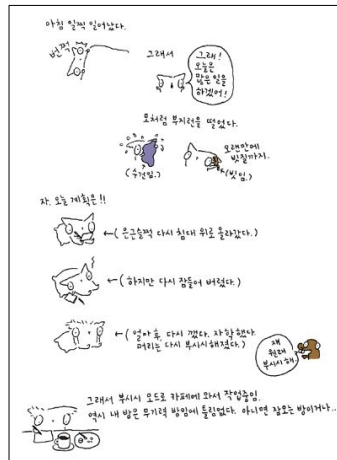 아침 일찍 일어났다.
번쩍
그래서
그래!
오늘은
많은 일을
하겠어!
모처럼 부지런을 떨었다.
오랜만에
빗질까지.
(수건임.)
(빗임.)
자. 오늘 계획은!!
←(은근슬쩍 다시 침대 위로 올라갔다.)
←(하지만 다시 잠들어 버렸다.)
←(얼마 후, 다시 깼다. 자학했다.
머리는 다시 부시시해졌다.)
쟤
원래
부시시해.
그래서 부시시 모드로 카페에 와서 작업중임.
역시 내 방은 무기력 방임에 틀림없다. 아니면 잠오는 방이거나..